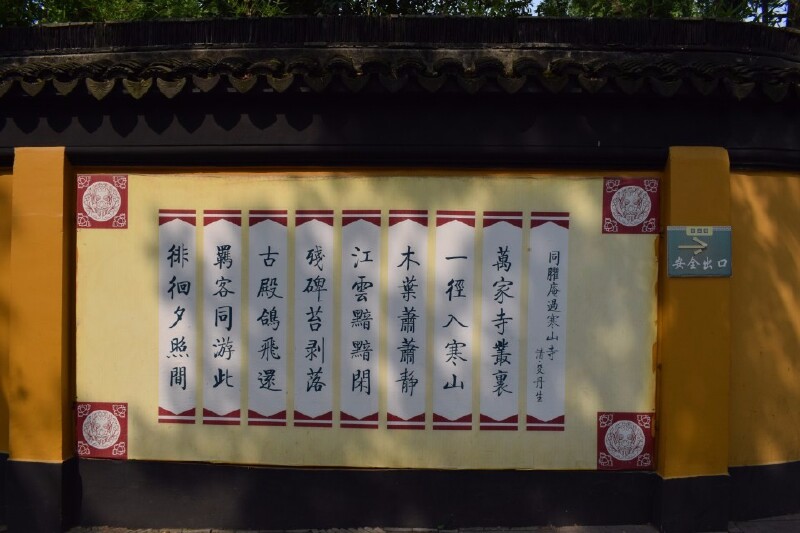 同臞庵過寒山寺
清 殳丹生
萬家寺叢裏
一徑入寒山
木葉蕭蕭靜
江雲黯黯閑
殘碑苔剥落
古殿鴿飛還
羈客同游此
徘徊夕照間
安全出口